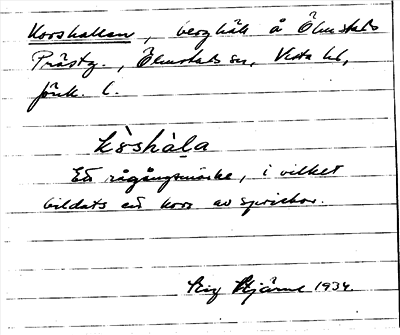 Korshallen, berghäll å Ölmstads
Prästg., Ölmstads sn, Vista hd,
Jönk. l.
kòshàla
Ett rågångsmärke, i vilket
bildats ett kors av sprickor.
Stig Hjärne 1934.